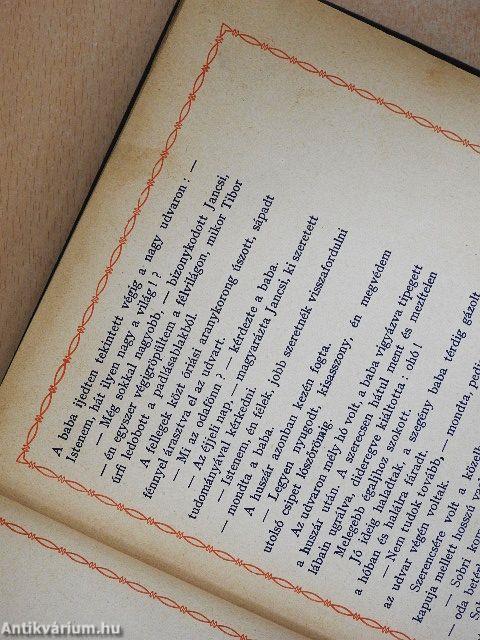 A baba ijedten tekintett végig a nagy udvaron: —
Istenem, hát ilyen nagy a világ!?
— Még sokkal nagyobb, — bizonykodott Jancsi,
— én egyszer végigröpültem a félvilágon, mikor Tibor
úrfi ledobott a padlásablakból.
A fellegek közt óriási aranykorong úszott, sápadt
fénnyel árasztva el az udvart.
— Mi az odafönn? — kérdezte a baba.
— Az éjjeli nap, — magyarázta Jancsi, ki szeretett
tudományával kérkedni.
— Istenem, én félek, jobb szeretnék visszafordulni
— mondta a baba.
A huszár azonban kezén fogta.
— Legyen nyugodt, kisasszony, én megvédem
utolsó csipet lőszőrömig.
Az udvaron mély hó volt, a baba vigyázva tipegett
a huszár után. A szerecsen hátul ment és mezítelen
lábain ugrálva, dideregve kiáltotta: ohó!
Melegebb égaljhoz szokott.
Jó ideig haladtak, a szegény baba térdig gázolt
a hóban és halálra fáradt.
— Nem tudok tovább, — mondta, pedi
az udvar végén voltak.
Szerencsére volt a közelb
kapuja mellett hosszú va
— Sobri kom
oda betér
Sol
Antikvárium.hu